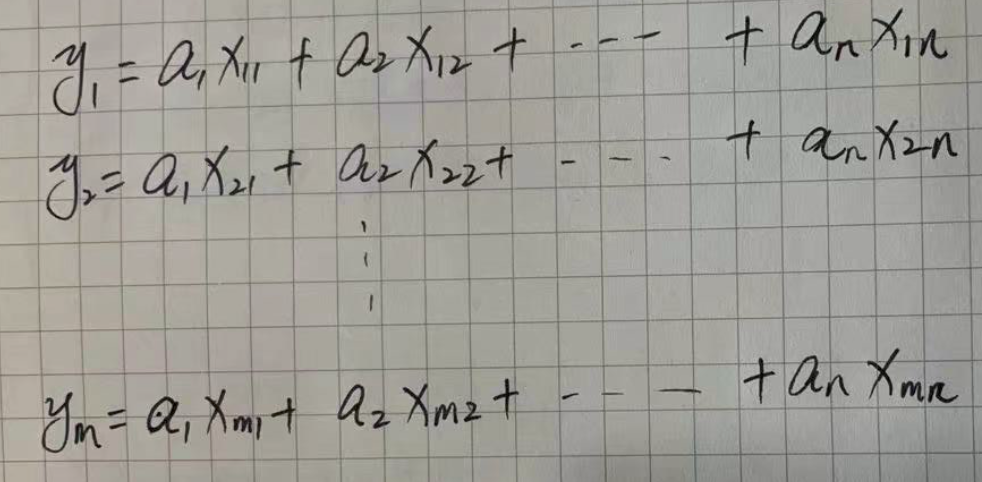 y₁ = a₁x₁₁ + a₂x₁₂ + --- + aₙx₁ₙ
y₂ = a₁x₂₁ + a₂x₂₂ + --- + aₙx₂ₙ
⋮
yₘ = a₁xₘ₁ + a₂xₘ₂ + --- + aₙxₘₙ